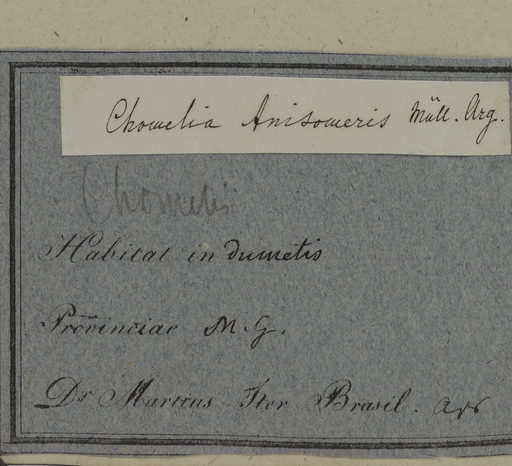 Chomelia Anisomeris Müll. Arg.
Chomelia
Habitat in dumetis
Provinciae M. G.
Dr Martius Iter Brasil.